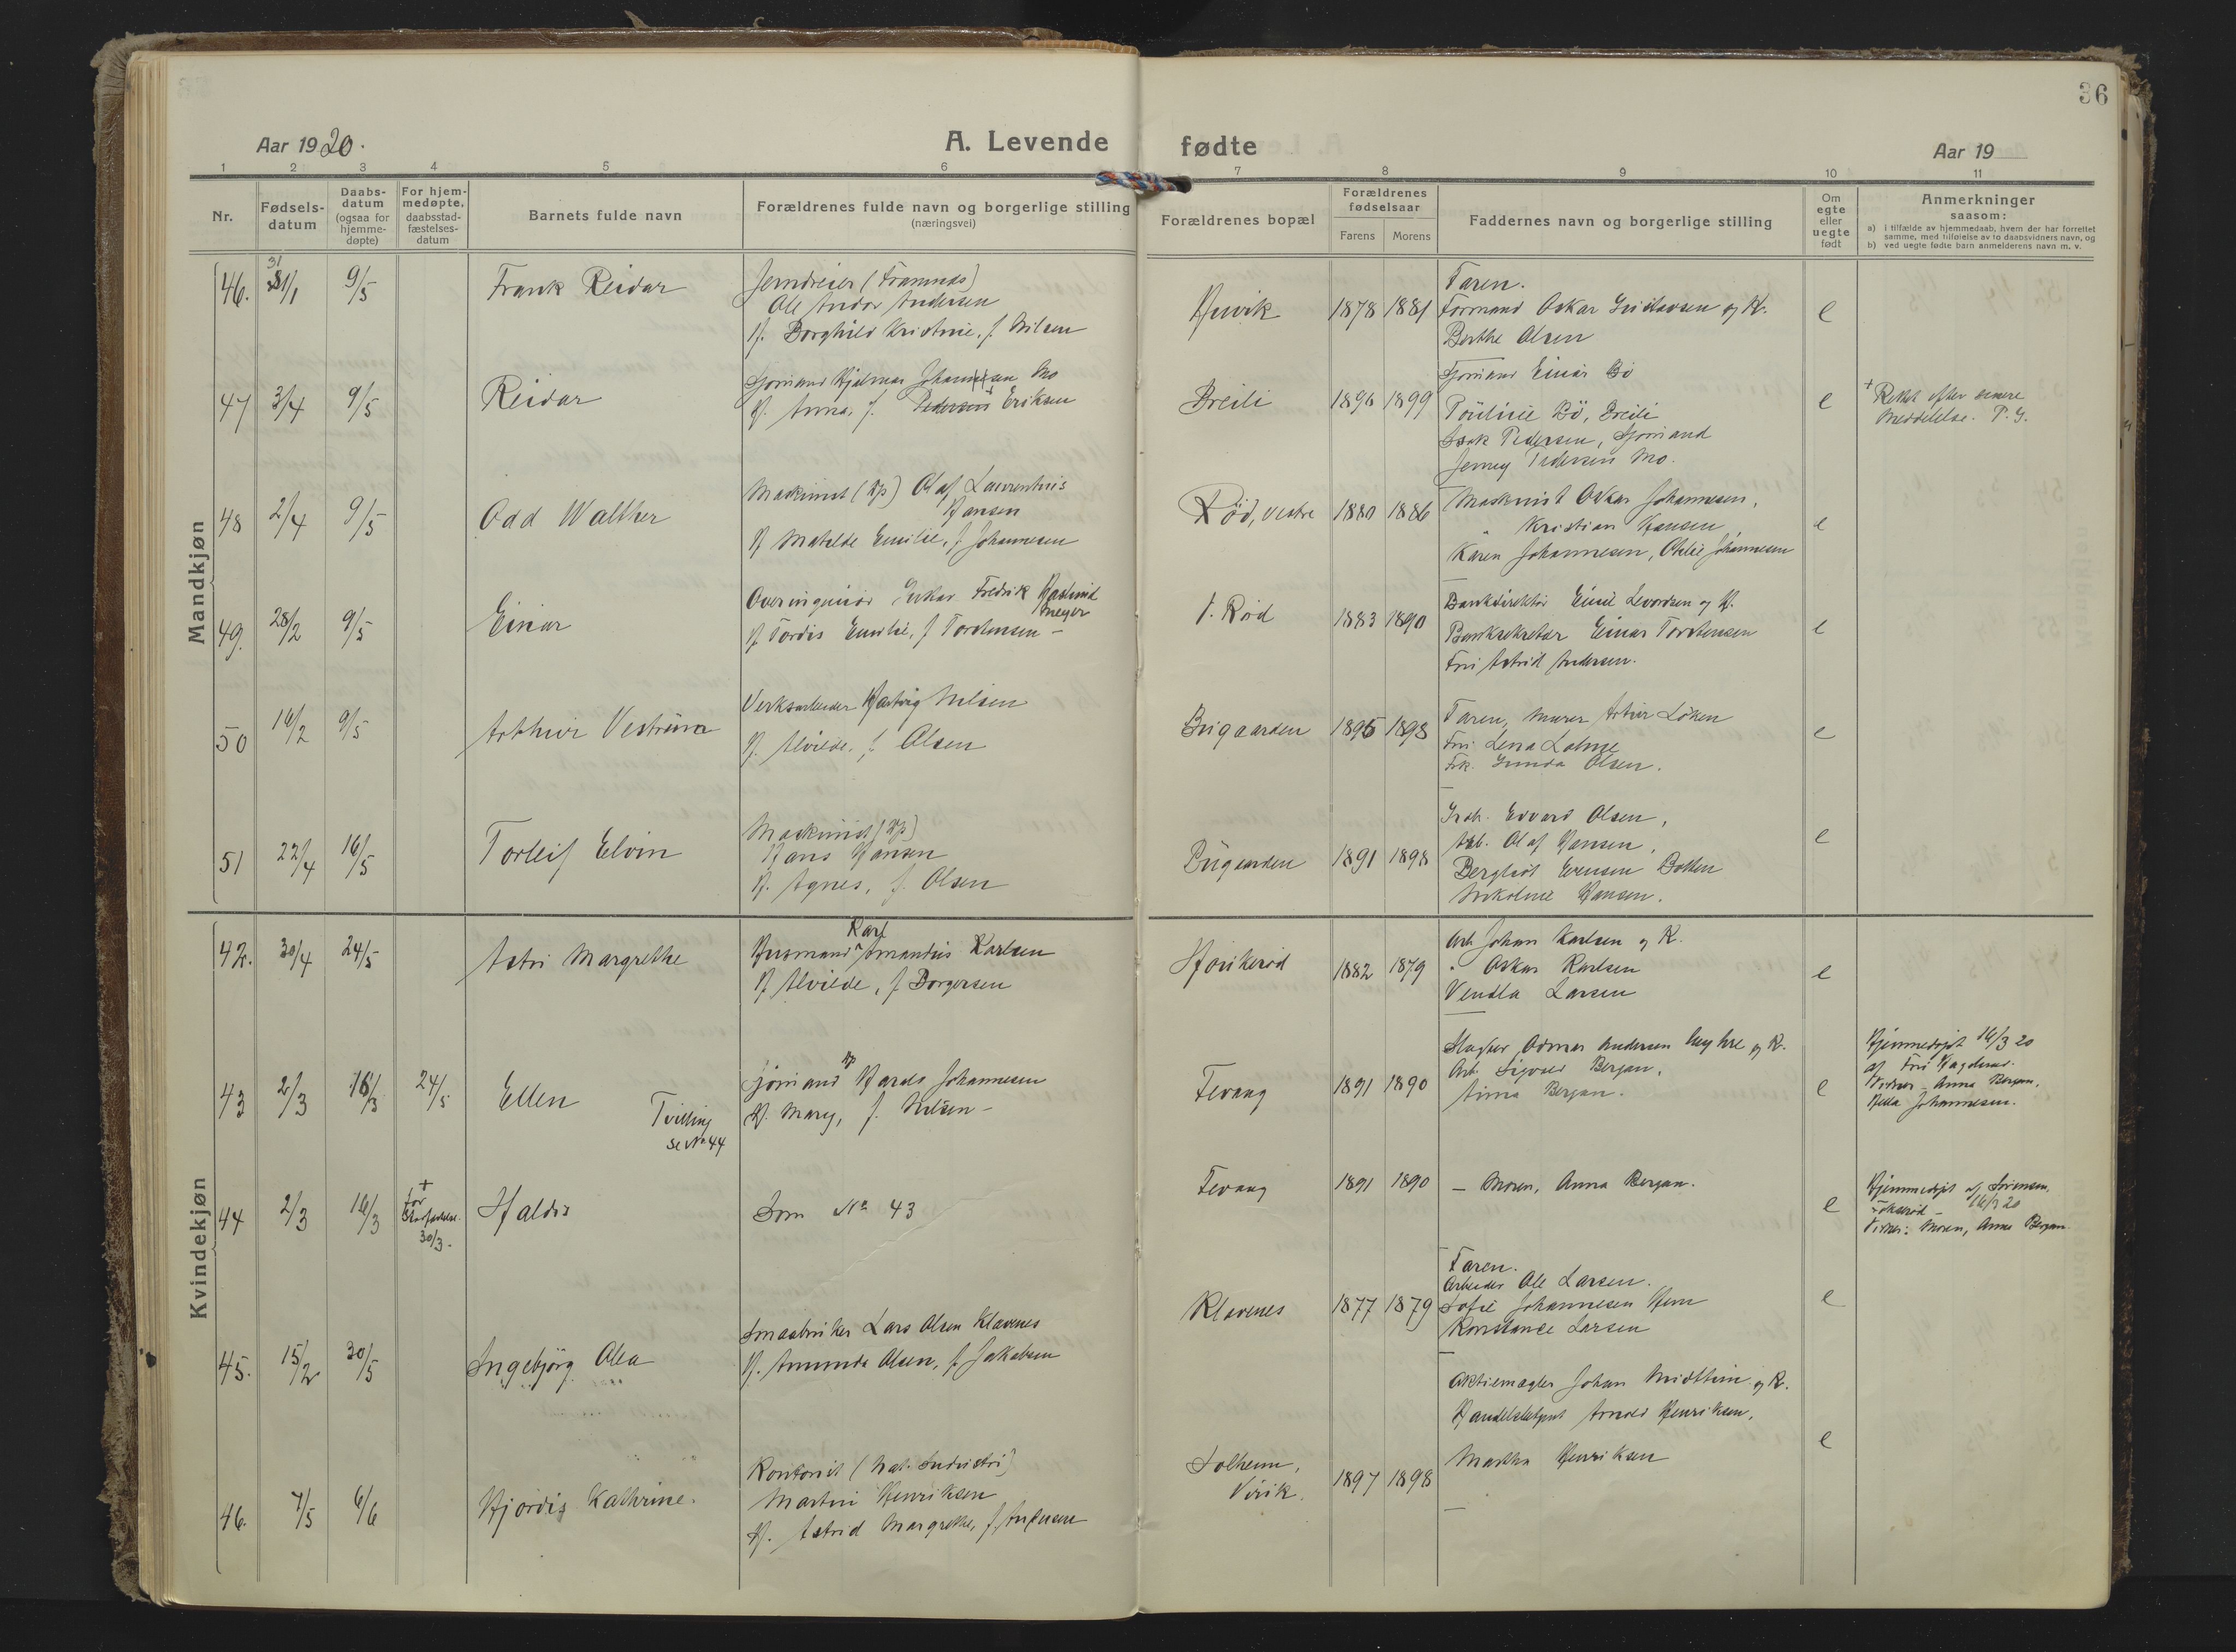 36
Aar 1920.
A. Levende fødte
Aar 19
1 2 3 4 5 6 7 8 9 10 11
Nr.
Fødselsdatum
Daabsdatum (ogsaa for hjemmedøpte)
For hjemmedøpte, daabsstadfæstelsesdatum
Barnets fulde navn
Forældrenes fulde navn og borgerlige stilling
(næringsvei)
Forældrenes bopæl
Forældrenes fødselsaar
Farens Morens
Faddernes navn og borgerlige stilling
Om egte eller uegte født
Anmerkninger
saasom:
a) i tilfælde av hjemmedaab, hvem der har forrettet samme, med tilføielse av to daabsvidners navn, og
b) ved uegte fødte barn anmelderens navn m. v.
Mandkjøn
46. 31/1 9/5 Frank Reidar
Jerndreier (Framnæs)
Ole Andor Andersen
H. Borghild Kristine, f. Nilsen
1878 1881
Faren.
Formand Oskar Gustavsen og K.
Berthe Olsen
e
47 3/4 9/5 Reidar
Sjømand Hjalmar Johansen Mo
H. Anna, f. Pedersen Eriksen
Breili 1896 1899
Sjømand Einar Bø
Pauline Bø, Breili
Isak Pedersen, Sjømand
Jenny Pedersen Mo.
e
+ Rettet efter senere
Meddelelse. P. G.
48 2/4 9/5 Odd Walther
Maskinist (Hp) Olaf Laurentius
Hansen
H Matilde Emilie, f. Johannesen
Rød, vestre 1880 1886
Maskinist Oskar Johannesen,
" Kristian Hansen,
Karen Johannesen, Othilie Johannesen
e
49. 28/2 9/5 Einar
Overingeniør Fredrik
Meyer
H Tordis Emilie, f Torstensen -
V. Rød 1883 1890
Bankdirektør Emil Levordsen og H.
Banksekretær Einar Torstensen
Fru Astrid Andersen.
e
50 16/2 9/5 Arthur
Verksarbeider Hartvig Nilsen
H. Alvilde, f. Olsen
Brigaarden 1895 1898
Faren, Murer Artur Løken
Fru Lena
Frk. Gunda Olsen.
e
51 22/4 16/5 Torleif Elvin
Maskinist (Hp)
Hans Hansen
H. Agnes, f. Olsen
1891 1898
Edvard Olsen,
Arb. Olaf Hansen,
Bergliot Evensen
Nikoline Hansen.
e
Kvindekjøn
42. 30/4 24/5 Astri Margrethe
Karl
Husmand Amandus Karlsen
H Alvilde, f Borgersen
1882 1879
Arb Johan Karlsen og K.
" Oskar Karlsen
Vendla Larsen
e
43 2/3 16/3 24/5 Ellen
Tvilling
se No 44
Hp
Sjømand Harald Johannesen
H. Mary, f. Nilsen -
Fevang 1891 1890
Slagter Andersen og K.
Arb. Sigvald Bergan,
Anna Bergan.
e
Hjemmedøpt 16/3 20
af Fru
Vidner - Anna Bergan,
Johannesen.
44 2/3 16/3
+
før
Stadfæstelse.
30/3-
Haldis
Som No 43
Fevang 1891 1890
- Moren, Anna Bergan.
e
Hjemmedøpt af Sørensen,
16/3 20
Vidner: Moren, Anna Bergan
45. 15/2 30/5 Ingebjørg Olea
Smaabruker Lars Olsen Klavenes
H. Amunda Olsen, f. Jakobsen
Klavenes 1877 1879
Faren.
Arbeider Ole Larsen.
Sofie Johannesen Hem
Konstance Larsen
e
46. 7/5 6/6 Hjordis Kathrine.
Kontorist (Nat. Industri)
Martin Henriksen
H. Astrid Margrethe, f.
Solheim,
Virik. 1897 1898
Aktiemægler Johan og K.
Arnold Henriksen,
Martha Henriksen
e